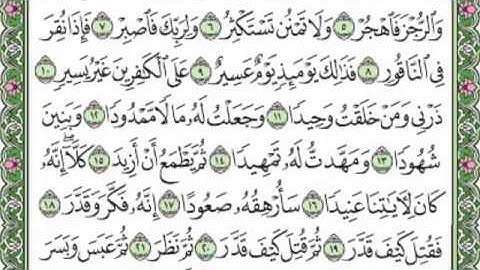 وَالرُّجْزَ فَاهْجُرْ ٥ وَلَا تَمْنُن تَسْتَكْثِرُ ٦ وَلِرَبِّكَ فَاصْبِرْ ٧ فَإِذَا نُقِرَ
فِي النَّاقُورِ ٨ فَذَٰلِكَ يَوْمَئِذٍ يَوْمٌ عَسِيرٌ ٩ عَلَى الْكَافِرِينَ غَيْرُ يَسِيرٍ ١٠
ذَرْنِي وَمَنْ خَلَقْتُ وَحِيدًا ١١ وَجَعَلْتُ لَهُ مَالًا مَّمْدُودًا ١٢ وَبَنِينَ
شُهُودًا ١٣ وَمَهَّدتُّ لَهُ تَمْهِيدًا ١٤ ثُمَّ يَطْمَعُ أَنْ أَزِيدَ ١٥ كَلَّا إِنَّهُ
كَانَ لِآيَاتِنَا عَنِيدًا ١٦ سَأُرْهِقُهُ صَعُودًا ١٧ إِنَّهُ فَكَّرَ وَقَدَّرَ ١٨
فَقُتِلَ كَيْفَ قَدَّرَ ١٩ ثُمَّ قُتِلَ كَيْفَ قَدَّرَ ٢٠ ثُمَّ نَظَرَ ٢١ ثُمَّ عَبَسَ وَبَسَرَ